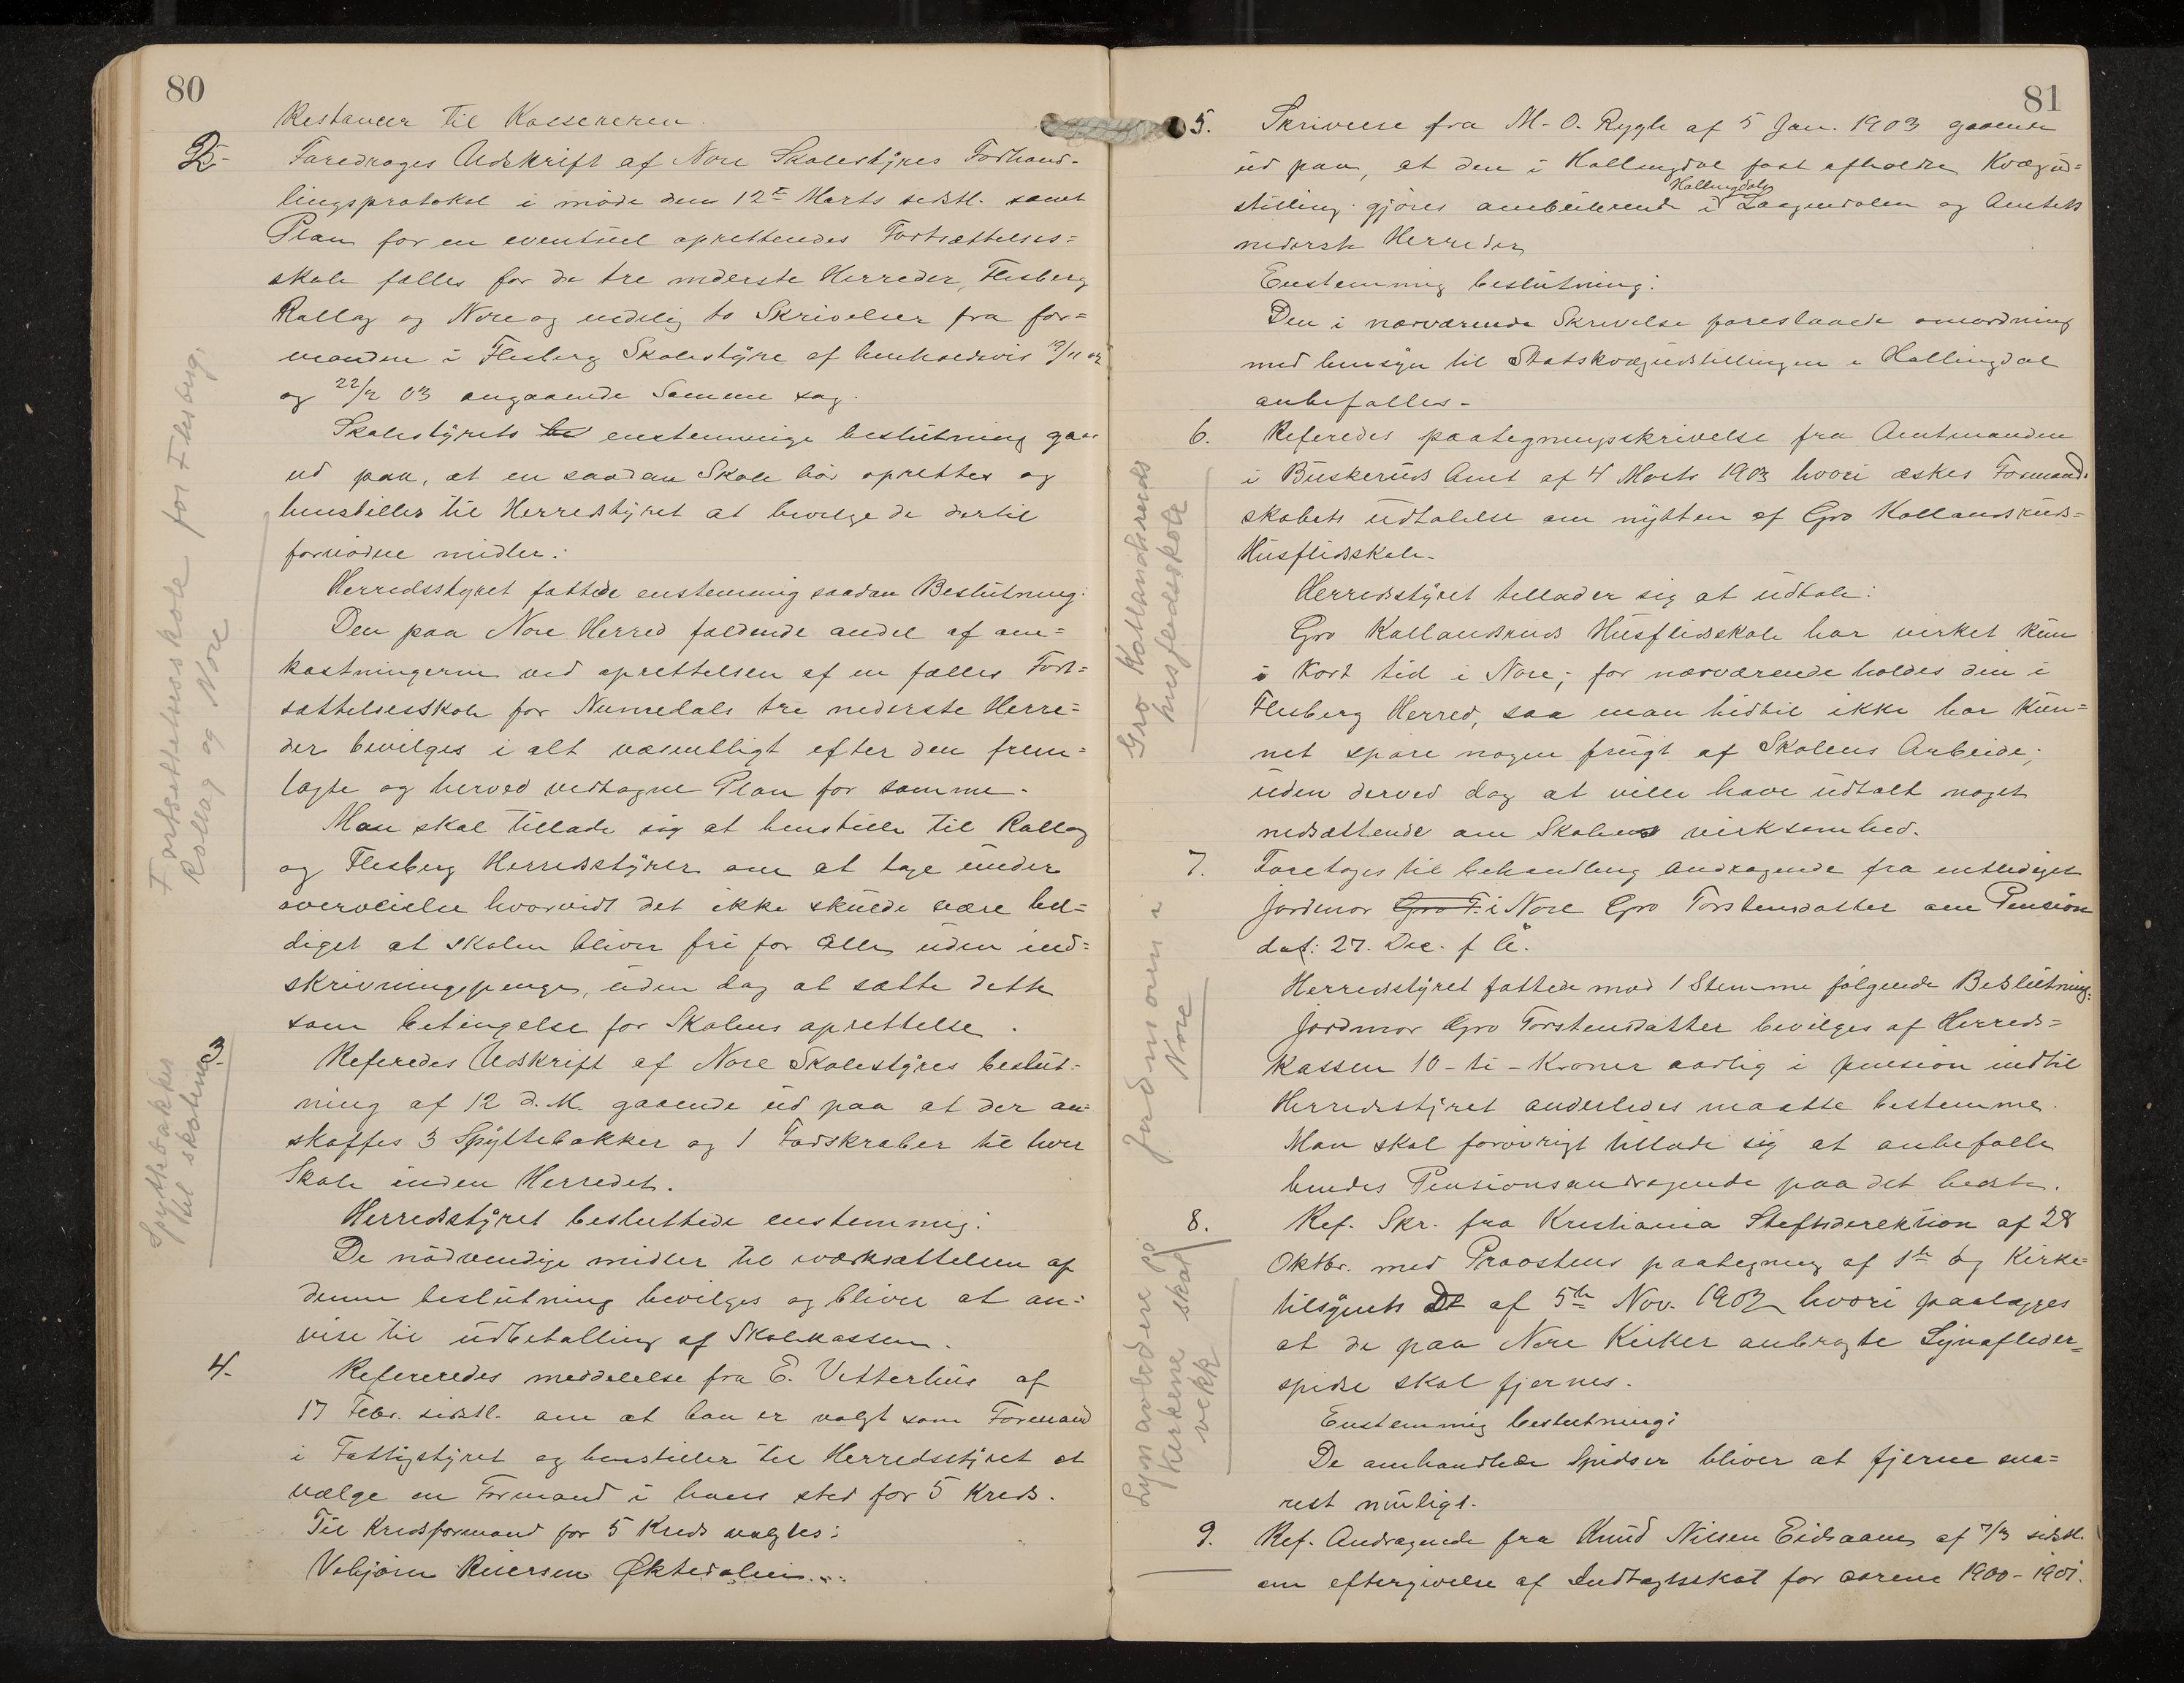 80
Restancer til Kassereren.
2.- Foredroges Udskrift af Nore Skolestyres Forhand-
lingsprotokol i møde den 12te Marts sidstl. samt
Plan for en eventuel oprettendes Fortsættelses=
skole fælles for de tre nederste Herreder, Flesberg
Rollag og Nore og endelig to Skrivelser fra for=
manden i Flesberg Skolestyre af henholdsvis
og 22/2 03 angaaende Samme sag.
Skolestyrets be enstemmige beslutning gaar
ud paa, at en saadan Skole bør oprettes og
henstilles til Herredstyret at bevilge de dertil
fornødne midler.
Herredsstyret fattede enstemmig saadan Beslutning:
Den paa Nore Herred faldende andel af om=
kostningerne ved oprettelsen af en fælles Fort=
sættelsesskole for Numedals tre nederste Herre=
der bevilges i alt væsentligt efter den frem=
lagte og herved vedtagne Plan for samme.
Man skal tillade sig at henstille til Rollag
og Flesberg Herredsstyrer om at tage under
overveielse hvorvidt det ikke skulde være hel=
diget at skolen bliver fri for alle uden ind=
skrivningspenge, uden dog at sætte dette
som betingelse for Skolens oprettelse.
3 Referedes Udskrift af Nore Skolestyres beslut=
ning af 12 d. M. gaaende ud paa at der an=
skaffes 3 Spyttebakker og 1 Fodskraber til hver
Skole inden Herredet.
Herredsstyret besluttede enstemmig:
De nødvendige midler til iværksættelsen af
denne beslutning bevilges og bliver at an=
vise til udbetalling af Skolekassen.
4. Refereredes meddelelse fra E. Vetterhus af
17 Febr. sidstl. om at han er valgt som Formand
i Fattigstyret og henstiller til Herredsstyret at
vælge en Formand i hans sted for 5 Kreds.
Til Kredsformand for 5 Kreds valgtes:
Vebjørn Reiersen Øktedalen
Fortsettelsesskole for Flesberg,
Rollag og Nore
Spyttebakker
til skolene
81
5. Skrivelse fra M. O. Rygh af 5 Jan. 1903 gaaende
ud paa, at den i Hallingdal fast afholdte Kvægud=
Hallingdal,
stilling gjøres ambulerende i Laagendalen og Amtets
nederste Herreder
Enstemmig beslutning:
Den i nærværende Skrivelse foreslaaede omordning
med hensyn til Statskvægudstillingen i Hallingdal
anbefalles.-
6. Referedes paategningsskrivelse fra Amtmanden
i Buskeruds Amt af 4 Marts 1903 hvori æskes Formand=
skabets udtalelse om nytten af Gro Kollandsruds=
Husflidsskole.
Herredsstyret tillader sig at udtale:
Gro Kallandsruds Husflidsskole har virket kun
i kort tid i Nore; for nærværende holdes den i
Flesberg Herred, saa man hidtil ikke har kun=
net spore nogen frugt af Skolens Arbeide;
uden derved dog at ville have udtalt noget
nedsættende om Skolens virksomhed.
7. Foretages til behandling andragende fra entlediget
Jordmor Gro T. i Nore Gro Torstensdatter om Pension
dat: 27. Dec. f Å.
Herredsstyret fattede mod 1 Stemme følgende Beslutning:
Jordmor Gro Torstensdatter bevilges af Herreds=
kassen 10 - ti - Kroner aarlig i pension indtil
Herredsstyret anderledes maatte bestemme.
Man skal forøvrigt tillade sig at anbefalle
hendes Pensionsandragende paa det bedste.
8. Ref. Skr. fra Kristiania Stiftsdirektion af 28
Oktbr. med Proostens paategning af 1ste og Kirke=
tilsynets Do af 5te Nov. 1902 hvori paalægges
at de paa Nore Kirker anbragte Lynafleder=
spidse skal fjernes.
Enstemmig beslutning:
De omhandlede Spidser bliver at fjerne sna=
rest muligt.
9. Ref. Andragende fra Knud Nilsen Eidsaaen af 7/3 sidstl.
om eftergivelse af Indtægtsskat for aarene 1900-1901.
Gro Kollandsruds
husflidsskole
Jordmoren i
Nore
Lynavlederne på
Kirkene skal
vekk